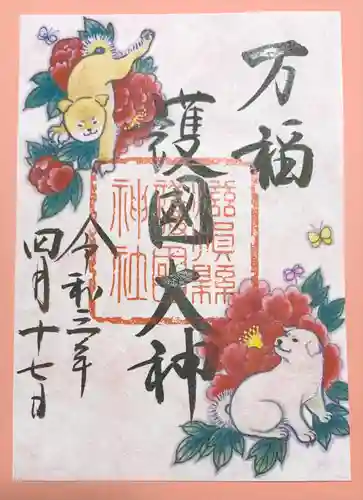 万福
護國大神
滋賀縣
護國
神社
令和三年
四月十七日